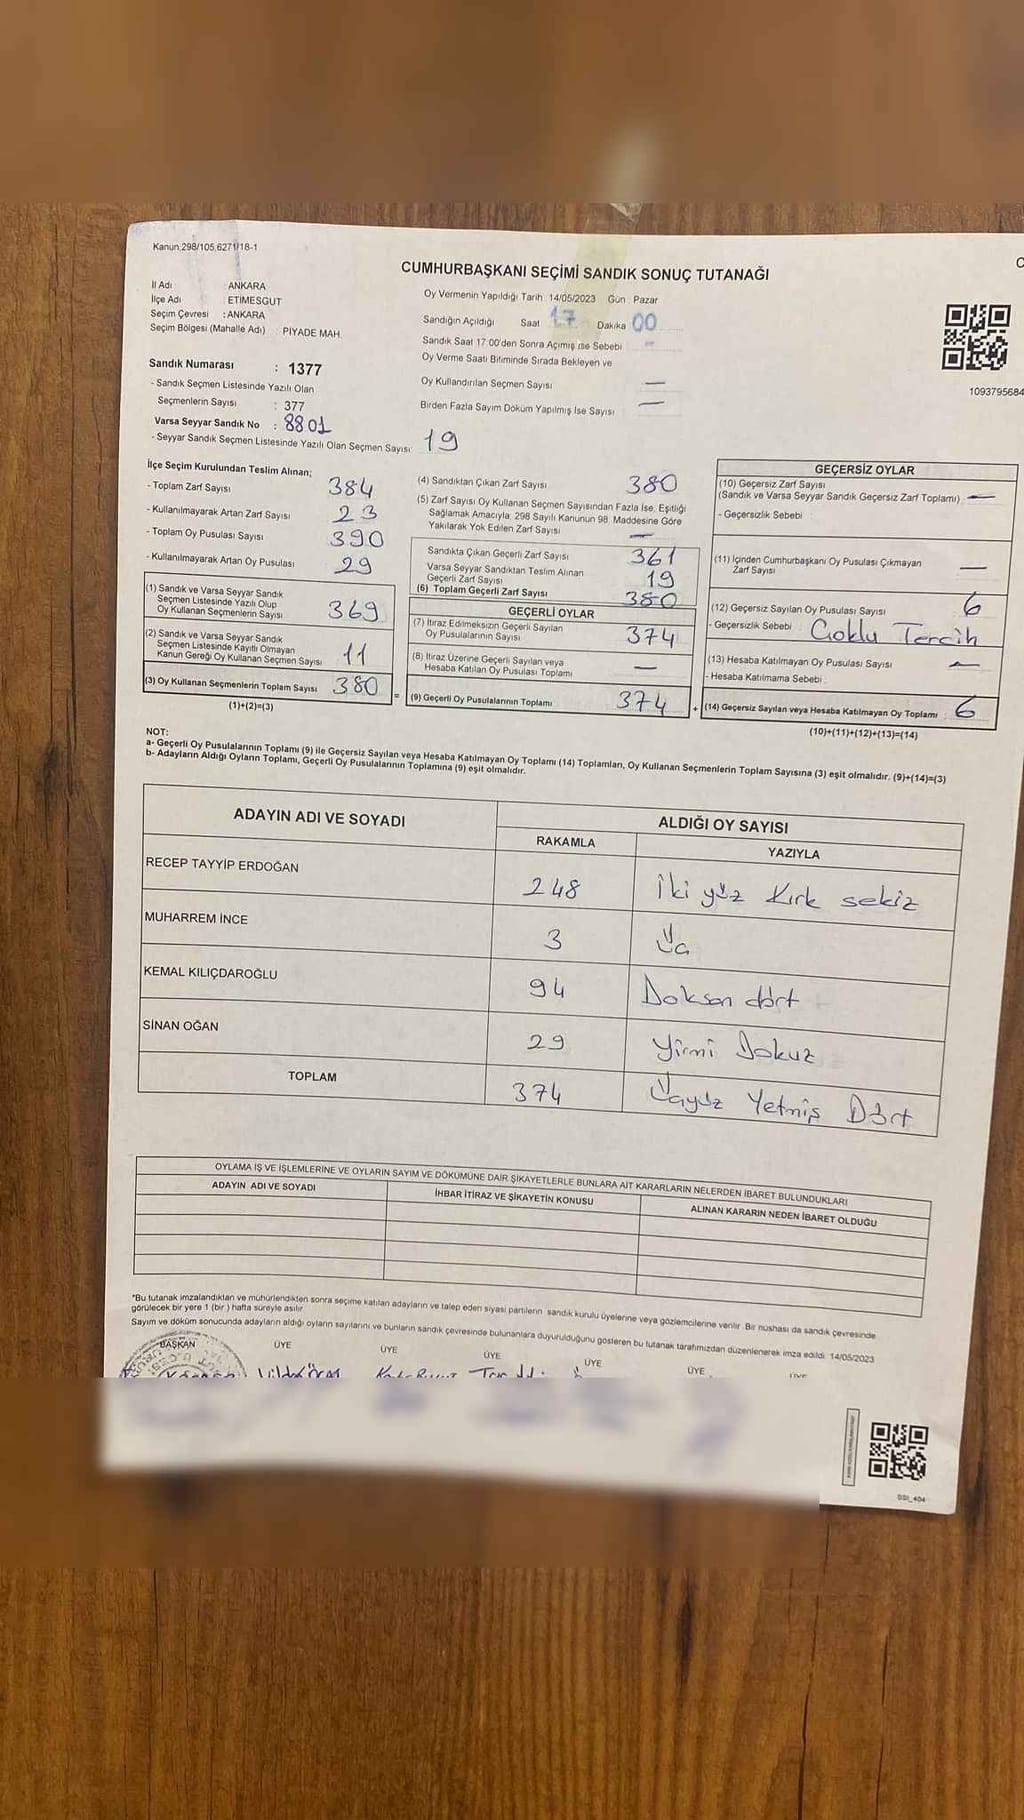 Kanun:298/105,6271/18-1
CUMHURBAŞKANI SEÇİMİ SANDIK SONUÇ TUTANAĞI
İl Adı ANKARA
İlçe Adı ETİMESGUT
Seçim Çevresi : ANKARA
Seçim Bölgesi (Mahalle Adı) : PİYADE MAH.
Oy Vermenin Yapıldığı Tarih: 14/05/2023 Gün Pazar
Sandığın Açıldığı Saat 17 Dakika 00
Sandık Saat 17:00'den Sonra Açımış ise Sebebi -
Oy Verme Saati Bitiminde Sırada Bekleyen ve
Oy Kullandırılan Seçmen Sayısı —
Birden Fazla Sayım Döküm Yapılmış İse Sayısı —
1093795684
Sandık Numarası : 1377
- Sandık Seçmen Listesinde Yazılı Olan
Seçmenlerin Sayısı : 377
Varsa Seyyar Sandık No : 8801
- Seyyar Sandık Seçmen Listesinde Yazılı Olan Seçmen Sayısı: 19
İlçe Seçim Kurulundan Teslim Alınan;
- Toplam Zarf Sayısı 384
- Kullanılmayarak Artan Zarf Sayısı 23
- Toplam Oy Pusulası Sayısı 390
- Kullanılmayarak Artan Oy Pusulası 29
(1) Sandık ve Varsa Seyyar Sandık
Seçmen Listesinde Yazılı Olup
Oy Kullanan Seçmenlerin Sayısı 369
(2) Sandık ve Varsa Seyyar Sandık
Seçmen Listesinde Kayıtlı Olmayan
Kanun Gereği Oy Kullanan Seçmen Sayısı 11
(3) Oy Kullanan Seçmenlerin Toplam Sayısı 380
(1)+(2)=(3)
(4) Sandıktan Çıkan Zarf Sayısı 380
(5) Zarf Sayısı Oy Kullanan Seçmen Sayısından Fazla İse, Eşitliği
Sağlamak Amacıyla, 298 Sayılı Kanunun 98. Maddesine Göre
Yakılarak Yok Edilen Zarf Sayısı —
Sandıkta Çıkan Geçerli Zarf Sayısı 361
Varsa Seyyar Sandıktan Teslim Alınan
Geçerli Zarf Sayısı 19
(6) Toplam Geçerli Zarf Sayısı 380
GEÇERLİ OYLAR
(7) İtiraz Edilmeksizin Geçerli Sayılan
Oy Pusulalarının Sayısı 374
(8) İtiraz Üzerine Geçerli Sayılan veya
Hesaba Katılan Oy Pusulası Toplamı —
= (9) Geçerli Oy Pusulalarının Toplamı 374
GEÇERSİZ OYLAR
(10) Geçersiz Zarf Sayısı
(Sandık ve Varsa Seyyar Sandık Geçersiz Zarf Toplamı) —
- Geçersizlik Sebebi
(11) İçinden Cumhurbaşkanı Oy Pusulası Çıkmayan
Zarf Sayısı —
(12) Geçersiz Sayılan Oy Pusulası Sayısı 6
- Geçersizlik Sebebi Çoklu Tercih
(13) Hesaba Katılmayan Oy Pusulası Sayısı —
- Hesaba Katılmama Sebebi :
+ (14) Geçersiz Sayılan veya Hesaba Katılmayan Oy Toplamı 6
(10)+(11)+(12)+(13)=(14)
NOT:
a- Geçerli Oy Pusulalarının Toplamı (9) ile Geçersiz Sayılan veya Hesaba Katılmayan Oy Toplamı (14) Toplamları, Oy Kullanan Seçmenlerin Toplam Sayısına (3) eşit olmalıdır. (9)+(14)=(3)
b- Adayların Aldığı Oyların Toplamı, Geçerli Oy Pusulalarının Toplamına (9) eşit olmalıdır.
ADAYIN ADI VE SOYADI ALDIĞI OY SAYISI
RAKAMLA YAZIYLA
RECEP TAYYİP ERDOĞAN 248 İki yüz Kırk sekiz
MUHARREM İNCE 3 Üç
KEMAL KILIÇDAROĞLU 94 Doksan dört
SİNAN OĞAN 29 Yirmi Dokuz
TOPLAM 374 Üçyüz Yetmiş Dört
OYLAMA İŞ VE İŞLEMLERİNE VE OYLARIN SAYIM VE DÖKÜMÜNE DAİR ŞİKAYETLERLE BUNLARA AİT KARARLARIN NELERDEN İBARET BULUNDUKLARI
ADAYIN ADI VE SOYADI İHBAR İTİRAZ VE ŞİKAYETİN KONUSU ALINAN KARARIN NEDEN İBARET OLDUĞU
*Bu tutanak imzalandıktan ve mühürlendikten sonra seçime katılan adayların ve talep eden siyasi partilerin sandık kurulu üyelerine veya gözlemcilerine verilir. Bir nüshası da sandık çevresinde
görülecek bir yere 1 (bir) hafta süreyle asılır.
Sayım ve döküm sonucunda adayların aldığı oyların sayılarını ve bunların sandık çevresinde bulunanlara duyurulduğunu gösteren bu tutanak tarafımızdan düzenlenerek imza edildi. 14/05/2023
BAŞKAN ÜYE ÜYE ÜYE ÜYE ÜYE